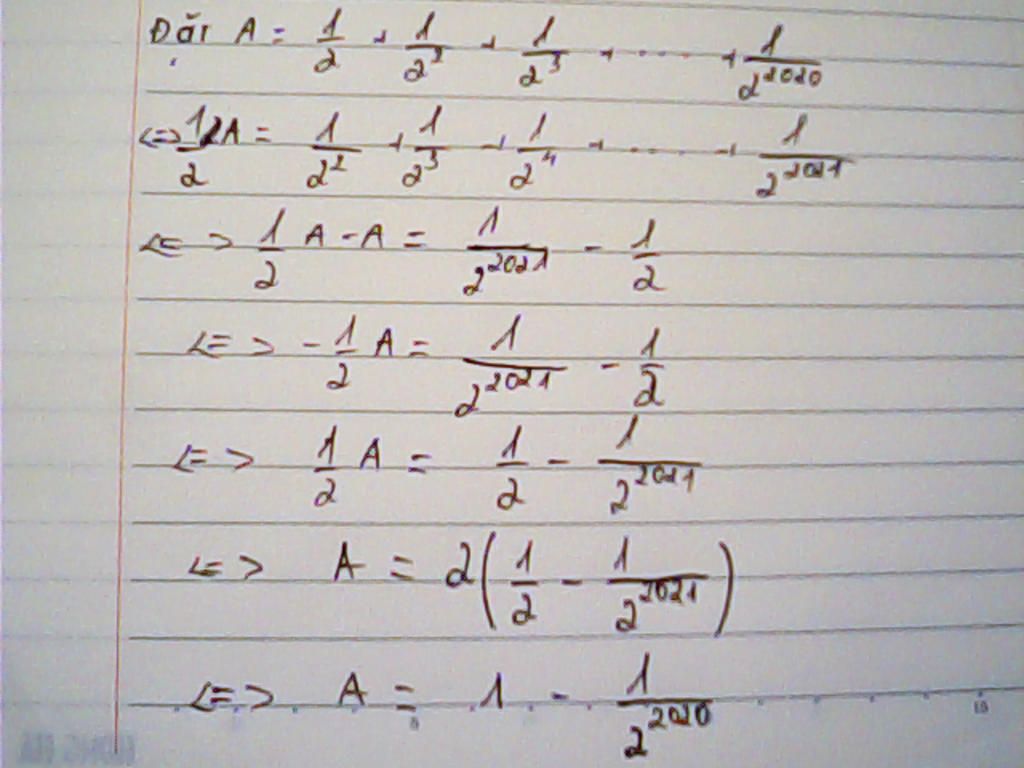 Đặt A = 1/2 + 1/2^2 + 1/2^3 + ..... + 1/2^2020
<=> 1/2 A = 1/2^2 + 1/2^3 + 1/2^4 + ..... + 1/2^2021
<=> 1/2 A - A = 1/2^2021 - 1/2
<=> -1/2 A = 1/2^2021 - 1/2
<=> 1/2 A = 1/2 - 1/2^2021
<=> A = 2(1/2 - 1/2^2021)
<=> A = 1 - 1/2^2020